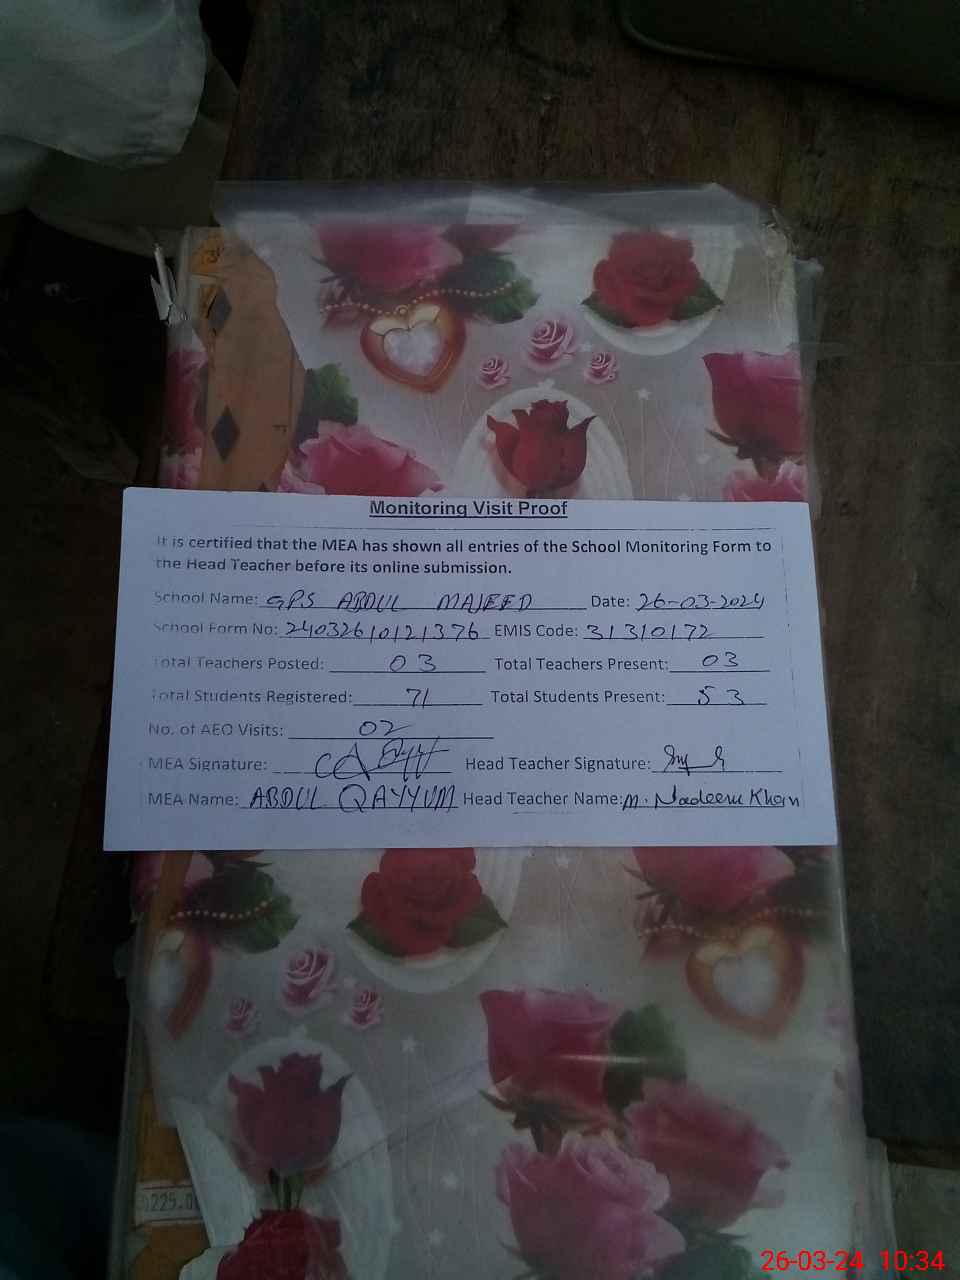 Monitoring Visit Proof
It is certified that the MEA has shown all entries of the School Monitoring Form to
the Head Teacher before its online submission.
School Name: GPS ABDUL MAJEED Date: 26-03-2024
School Form No: 24032610121376 EMIS Code: 31310172
Total Teachers Posted: 03 Total Teachers Present: 03
Total Students Registered: 71 Total Students Present: 53
No. of AEO Visits: 02
MEA Signature: Head Teacher Signature:
MEA Name: ABDUL QAYYUM Head Teacher Name: M. Nadeem Khan
26-03-24 10:34